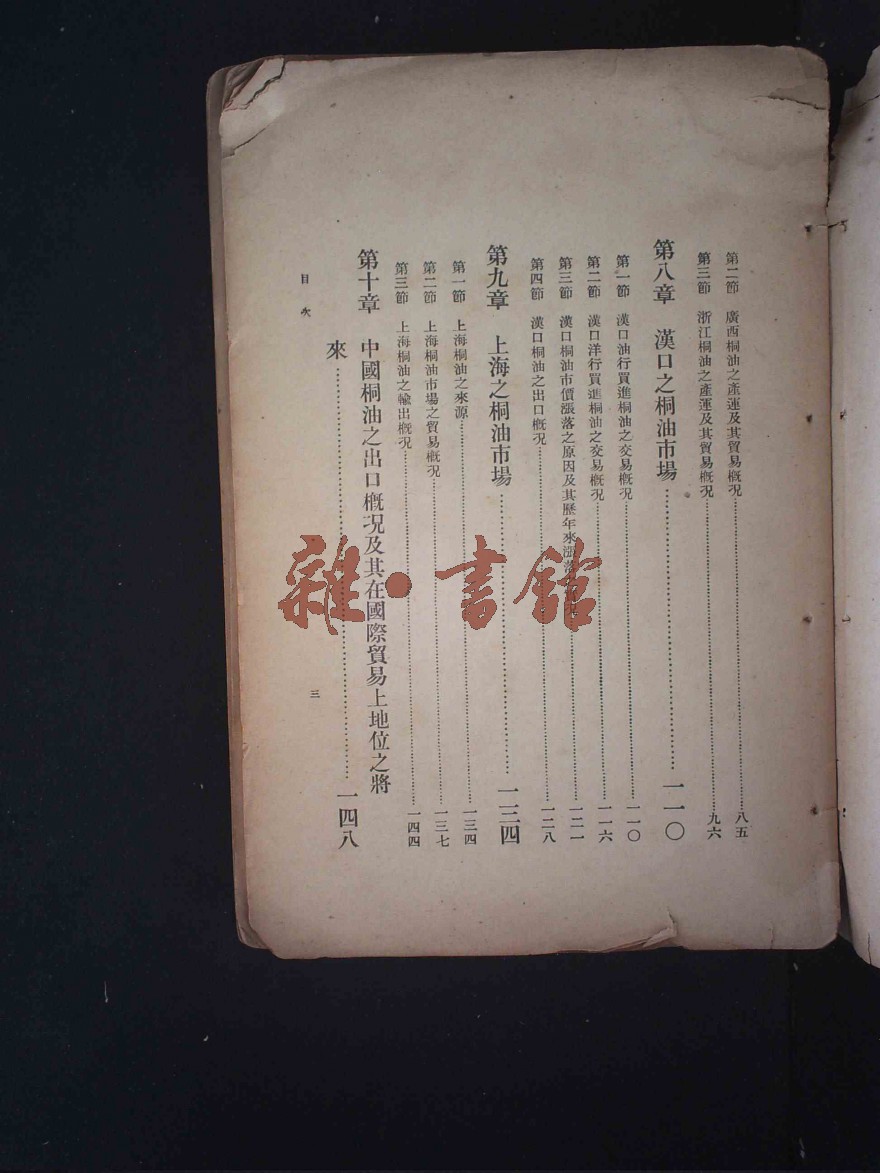 第二節　廣西桐油之產運及其貿易概况……八五
第三節　浙江桐油之產運及其貿易概况……九六
第八章　漢口之桐油市場……一一〇
第一節　漢口油行買進桐油之交易概况……一一〇
第二節　漢口洋行買進桐油之交易概况……一一六
第三節　漢口桐油市價漲落之原因及其歷年來漲落……一二一
第四節　漢口桐油之出口概况……一二八
第九章　上海之桐油市場……一三四
第一節　上海桐油之來源……一三四
第二節　上海桐油市場之貿易概况……一三七
第三節　上海桐油之輸出概况……一四四
第十章　中國桐油之出口概况及其在國際貿易上地位之將
來……一四八
目次
三
雜·書館